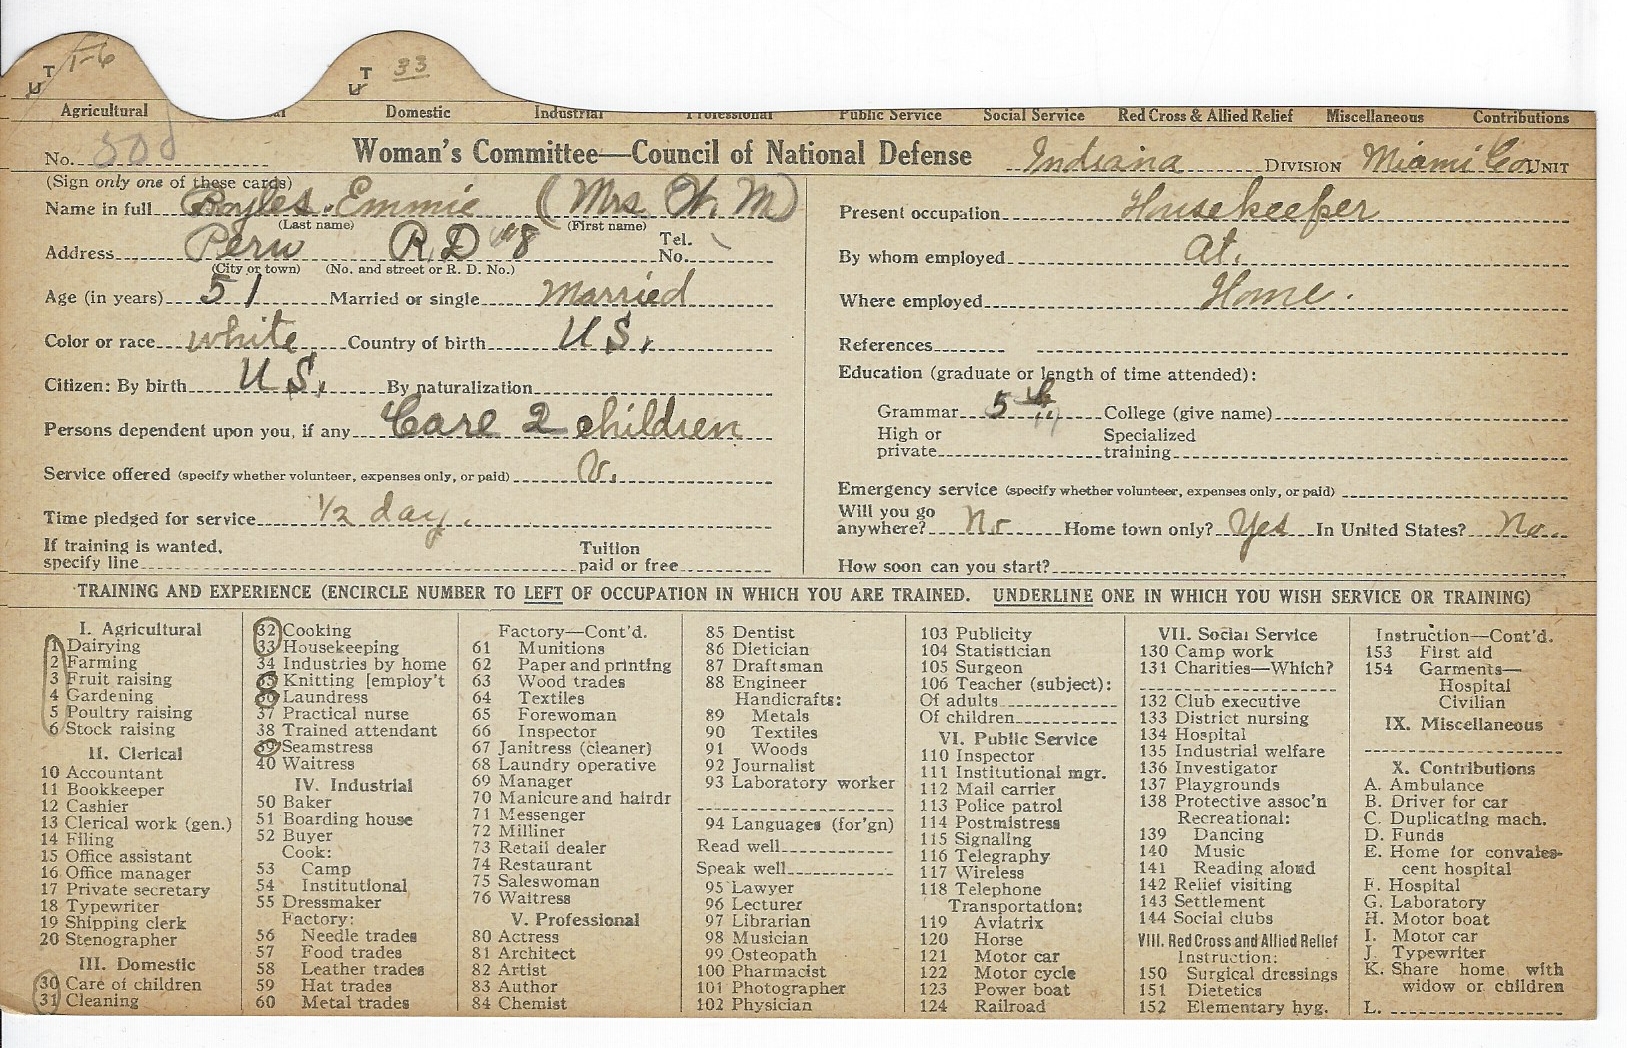 T U 1-6 T U 33
Agricultural Domestic Industrial Professional Public Service Social Service Red Cross & Allied Relief Miscellaneous Contributions
No. 500 Woman's Committee—Council of National Defense Indiana DIVISION Miami Co. UNIT
(Sign only one of these cards)
Name in full Emmie (Mrs. W. M)
(Last name) (First name)
Address Peru R.D. "8 Tel. No.
(City or town) (No. and street or R. D. No.)
Age (in years) 51 Married or single Married
Color or race white Country of birth U S.
Citizen: By birth U S. By naturalization
Persons dependent upon you, if any Care 2 children
Service offered (specify whether volunteer, expenses only, or paid) V.
Time pledged for service 1/2 day.
If training is wanted, specify line Tuition paid or free
Present occupation Housekeeper
By whom employed at.
Where employed Home.
References
Education (graduate or length of time attended):
Grammar 5th College (give name)
High or private Specialized training
Emergency service (specify whether volunteer, expenses only, or paid)
Will you go anywhere? No Home town only? Yes In United States? No
How soon can you start?
TRAINING AND EXPERIENCE (ENCIRCLE NUMBER TO LEFT OF OCCUPATION IN WHICH YOU ARE TRAINED. UNDERLINE ONE IN WHICH YOU WISH SERVICE OR TRAINING)
I. Agricultural
1 Dairying
2 Farming
3 Fruit raising
4 Gardening
5 Poultry raising
6 Stock raising
II. Clerical
10 Accountant
11 Bookkeeper
12 Cashier
13 Clerical work (gen.)
14 Filing
15 Office assistant
16 Office manager
17 Private secretary
18 Typewriter
19 Shipping clerk
20 Stenographer
III. Domestic
30 Care of children
31 Cleaning
32 Cooking
33 Housekeeping
34 Industries by home
35 Knitting [employ't
36 Laundress
37 Practical nurse
38 Trained attendant
39 Seamstress
40 Waitress
IV. Industrial
50 Baker
51 Boarding house
52 Buyer
Cook:
53 Camp
54 Institutional
55 Dressmaker
Factory:
56 Needle trades
57 Food trades
58 Leather trades
59 Hat trades
60 Metal trades
Factory—Cont'd.
61 Munitions
62 Paper and printing
63 Wood trades
64 Textiles
65 Forewoman
66 Inspector
67 Janitress (cleaner)
68 Laundry operative
69 Manager
70 Manicure and hairdr
71 Messenger
72 Milliner
73 Retail dealer
74 Restaurant
75 Saleswoman
76 Waitress
V. Professional
80 Actress
81 Architect
82 Artist
83 Author
84 Chemist
85 Dentist
86 Dietician
87 Draftsman
88 Engineer
Handicrafts:
89 Metals
90 Textiles
91 Woods
92 Journalist
93 Laboratory worker
94 Languages (for'gn)
Read well
Speak well
95 Lawyer
96 Lecturer
97 Librarian
98 Musician
99 Osteopath
100 Pharmacist
101 Photographer
102 Physician
103 Publicity
104 Statistician
105 Surgeon
106 Teacher (subject):
Of adults
Of children
VI. Public Service
110 Inspector
111 Institutional mgr.
112 Mail carrier
113 Police patrol
114 Postmistress
115 Signaling
116 Telegraphy
117 Wireless
118 Telephone
Transportation:
119 Aviatrix
120 Horse
121 Motor car
122 Motor cycle
123 Power boat
124 Railroad
VII. Social Service
130 Camp work
131 Charities—Which?
132 Club executive
133 District nursing
134 Hospital
135 Industrial welfare
136 Investigator
137 Playgrounds
138 Protective assoc'n
Recreational:
139 Dancing
140 Music
141 Reading aloud
142 Relief visiting
143 Settlement
144 Social clubs
VIII. Red Cross and Allied Relief
Instruction:
150 Surgical dressings
151 Dietetics
152 Elementary hyg.
Instruction—Cont'd.
153 First aid
154 Garments—
Hospital
Civilian
IX. Miscellaneous
X. Contributions
A. Ambulance
B. Driver for car
C. Duplicating mach.
D. Funds
E. Home for convales-
cent hospital
F. Hospital
G. Laboratory
H. Motor boat
I. Motor car
J. Typewriter
K. Share home with
widow or children
L.